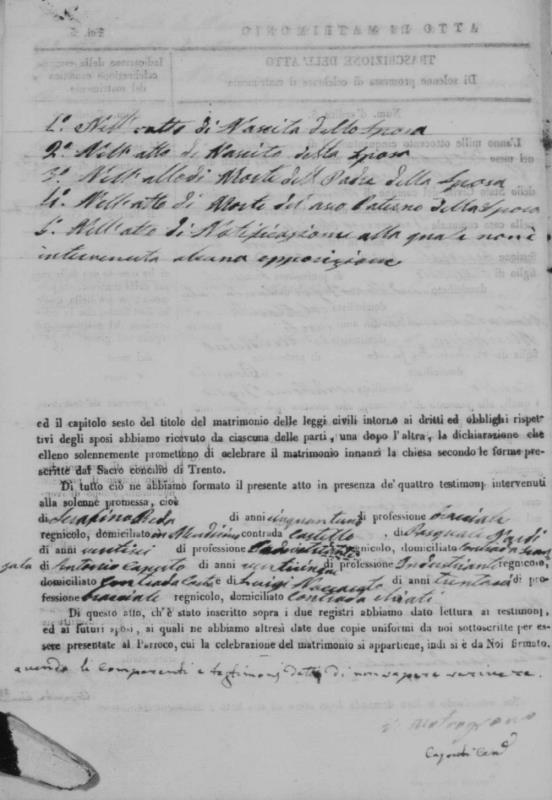 1.° Nell'atto di Nascita dello Sposo
2.° Nell'atto di Nascita della Sposa
3.° Nell'atto di Morte del Padre della Sposa
4.° Nell'atto di Morte del avo Paterno della Sposa
5.° Nell'atto di Notificazione alla quale non è
intervenuta alcuna opposizione
ed il capitolo sesto del titolo del matrimonio delle leggi civili intorno ai dritti ed obblighi rispet-
tivi degli sposi abbiamo ricevuto da ciascuna delle parti, una dopo l'altra, la dichiarazione che
elleno solennemente promettono di celebrare il matrimonio innanzi la chiesa secondo le forme pre-
scritte dal Sacro concilio di Trento.
Di tutto ciò ne abbiamo formato il presente atto in presenza de' quattro testimonj intervenuti
alla solenne promessa, cioè
di Serafino di anni cinquantuno di professione bracciale
regnicolo, domiciliato in contrada Castello, di Pasquale Nardi
di anni ventisei di professione regnicolo, domiciliato contrada
di Antonio Caputo di anni di professione Industriante regnicolo,
domiciliato Contrada e Luigi di anni di pro-
fessione bracciale regnicolo, domiciliato contrada
Di questo atto, ch'è stato inscritto sopra i due registri abbiamo dato lettura ai testimonj,
ed ai futuri sposi, ai quali ne abbiamo altresì date due copie uniformi da noi sottoscritte per es-
sere presentate al Parroco, cui la celebrazione del matrimonio si appartiene, indi si è da Noi firmato.
avendo li comparenti e testimonj detto di non sapere scrivere.